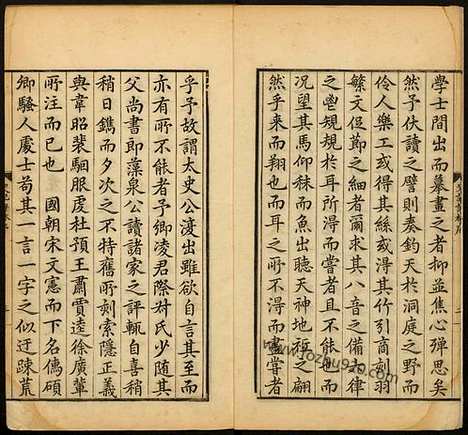 學士間出而摹畫之者抑並焦心殫思矣
然予伏讀之譬則奏鈞天於洞庭之野而
伶人樂工或得其絲或得其竹引商刻羽
繁文促節之細者爾求其八音之備律
之鬯規規於耳所得而嘗者且不能也
況望其馬仰秣而魚出聽天神地祇之翩
然乎來而翔也乎而耳之所不得而盡嘗者
乎予故謂太史公復出雖欲自言其至而
亦有所不能者予鄉凌君際叔氏少隨其
父尚書郎藻泉公讀諸家之評輒自喜稍
稍日鐫而夕次之不特舊所刻索隱正義
與韋昭裴駰服虔杜預王肅賈逵徐廣輩
所注而已也 國朝宋文憲而下名儒碩
卿騷人處士苟其一言一字之似迂疎荒